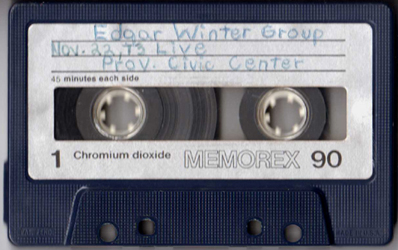 Edgar Winter Group
Nov. 22, 73 Live
Prov. Civic Center
45 minutes each side
1 Chromium dioxide MEMOREX 90